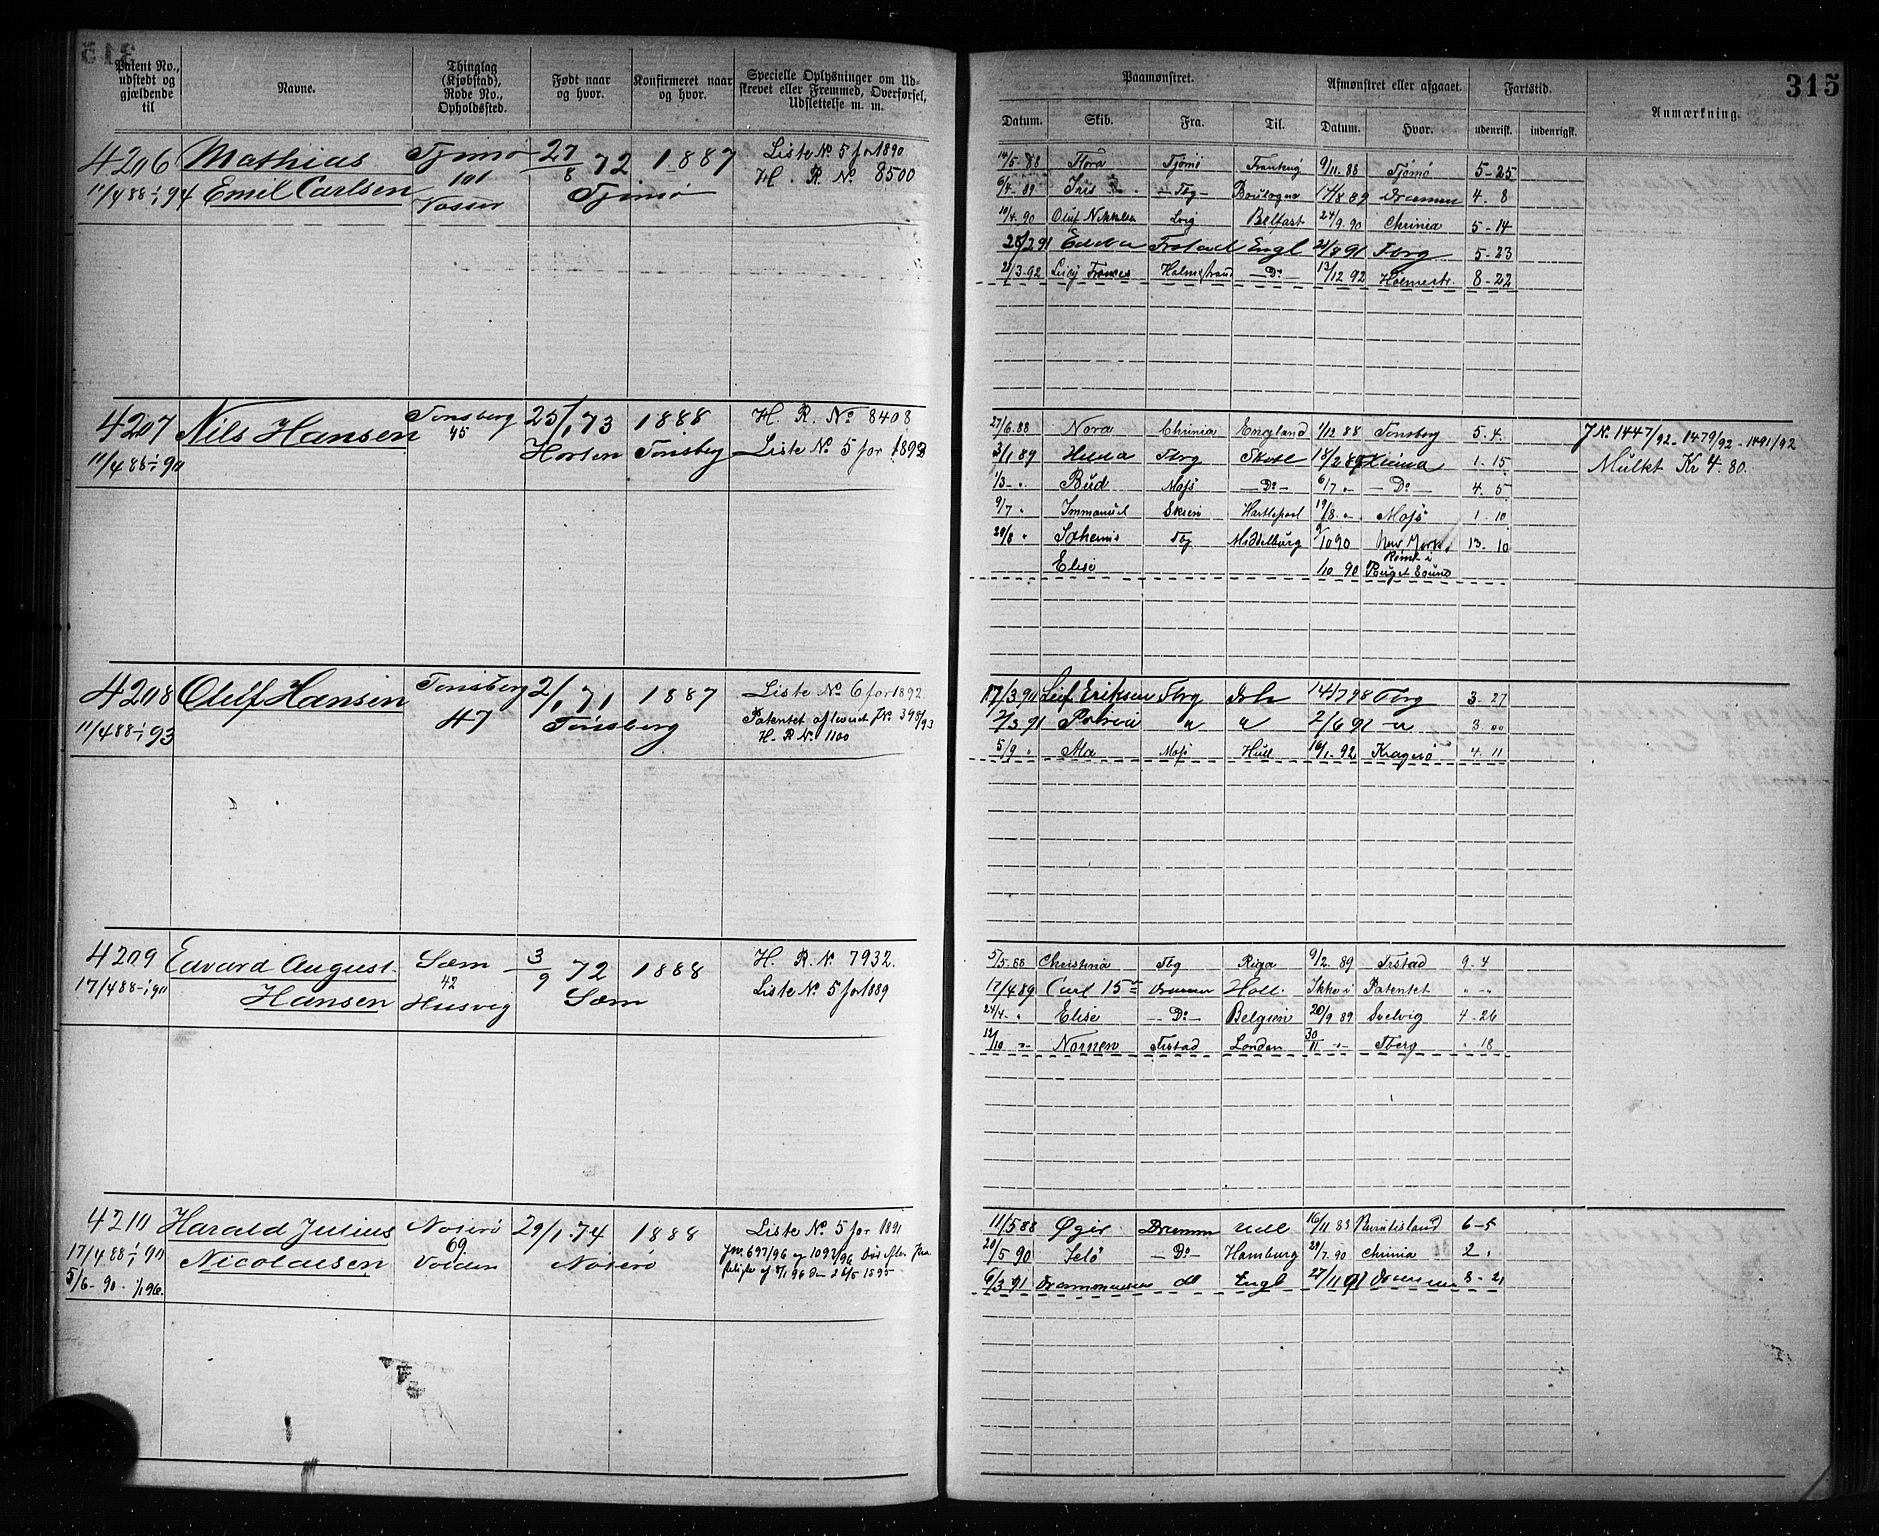 315
Patent No., udstedt og gjældende til
Navne.
Thinglag (Kjøbstad), Rode No., Opholdssted.
Født naar og hvor.
Konfirmeret naar og hvor.
Specielle Oplysninger om Udskrevet eller Fremmed, Overførsel, Udslettelse m. m.
Paamønstret.
Afmønstret eller afgaaet.
Fartstid.
Anmærkning.
Datum. Skib. Fra. Til. Datum. Hvor. udenrisk. indenrigsk.
4206 Mathias Tjømø 27/8 72 1887 Liste No 5 for 1890
11/4 88-1/1 94 Emil Carlsen 101 Tjømø H. R. No 8500
Vasser
14/5 88 Flora Tjømø 9/11 88 Tjømø 5-25
6/4 89 Iris Tbg Boulogne 17/8 89 Drammen 4. 8
10/4 90 Belfast 24/9 90 Chrinia 5-14
Engl 5-23
21/3-92 Lucy Frances Holmestrand Do 13/12 92 Holmestr. 8-22
4207 Nils Hansen Tønsberg 25/1 73 1888 H. R. No 8408
11/4 88-1/1 90 45 Horten Tønsberg Liste No 5 for 1893
27/6 88 Nora Chrinia England 1/12 88 Tønsberg 5. 4.
3/1 89 Tbrg 18/2 89 1. 15
1/3 - Bud Moss Do 6/7 Do 4. 5
9/7 Immanuel Skien Hartlepool 19/8 Moss 1. 10
20/8 Tbg Middelburg 9/10 90 New York 13. 10
Elise 1/10 90 Rømt i Puget Sound
J No 1447/92-1479/92-1491/92
Mulkt Kr 4.80.
4208 Oluf Hansen Tønsberg 2/1 71 1887 Liste No 6 for 1892
11/4 88-1/1 93 47 Tønsberg Patentet afleveret J No 398/93
H. R No 1100
17/3 90 Leif Eriksen Tbrg 14/7 98 Tbrg 3. 27
2/3 91 2/6 91 3.
5/9 Ala Moss Hull 16/1-92 Kragerø 4. 11
4209 Edvard August Sæm 3/9 72 1888 H. R. No 7932.
17/4 88-1/1 90 Hansen 42 Husvig Sæm Liste No 5 for 1889
5/5 88 Christina Tbg Riga 9/2 89 Frstad 9. 4
17/4 89 Carl 15de Drammen Holl. Ikke i Patentet
24/4 Elise Do Belgien 20/9 89 Svelvig 4-26
12/10 Nornen Frstad London 30/11 Tberg 18
4210 Harald Julius Nøterø 29/1 74 1888 Liste No 5 for 1891
17/4 88-1/1 90 Nicolaisen 69 Nøterø J No 697/96 og 1092/96
5/6-90-1/1 96. Volden
11/5 88 Øgir Drammn Udl 16/11 88 Burntisland 6-5
20/5 90 Jelö Do Hamburg 29/7 90 Chrinia 2
6/3 91 Drammenseren do Engl 27/11 91 Drammen 8-21